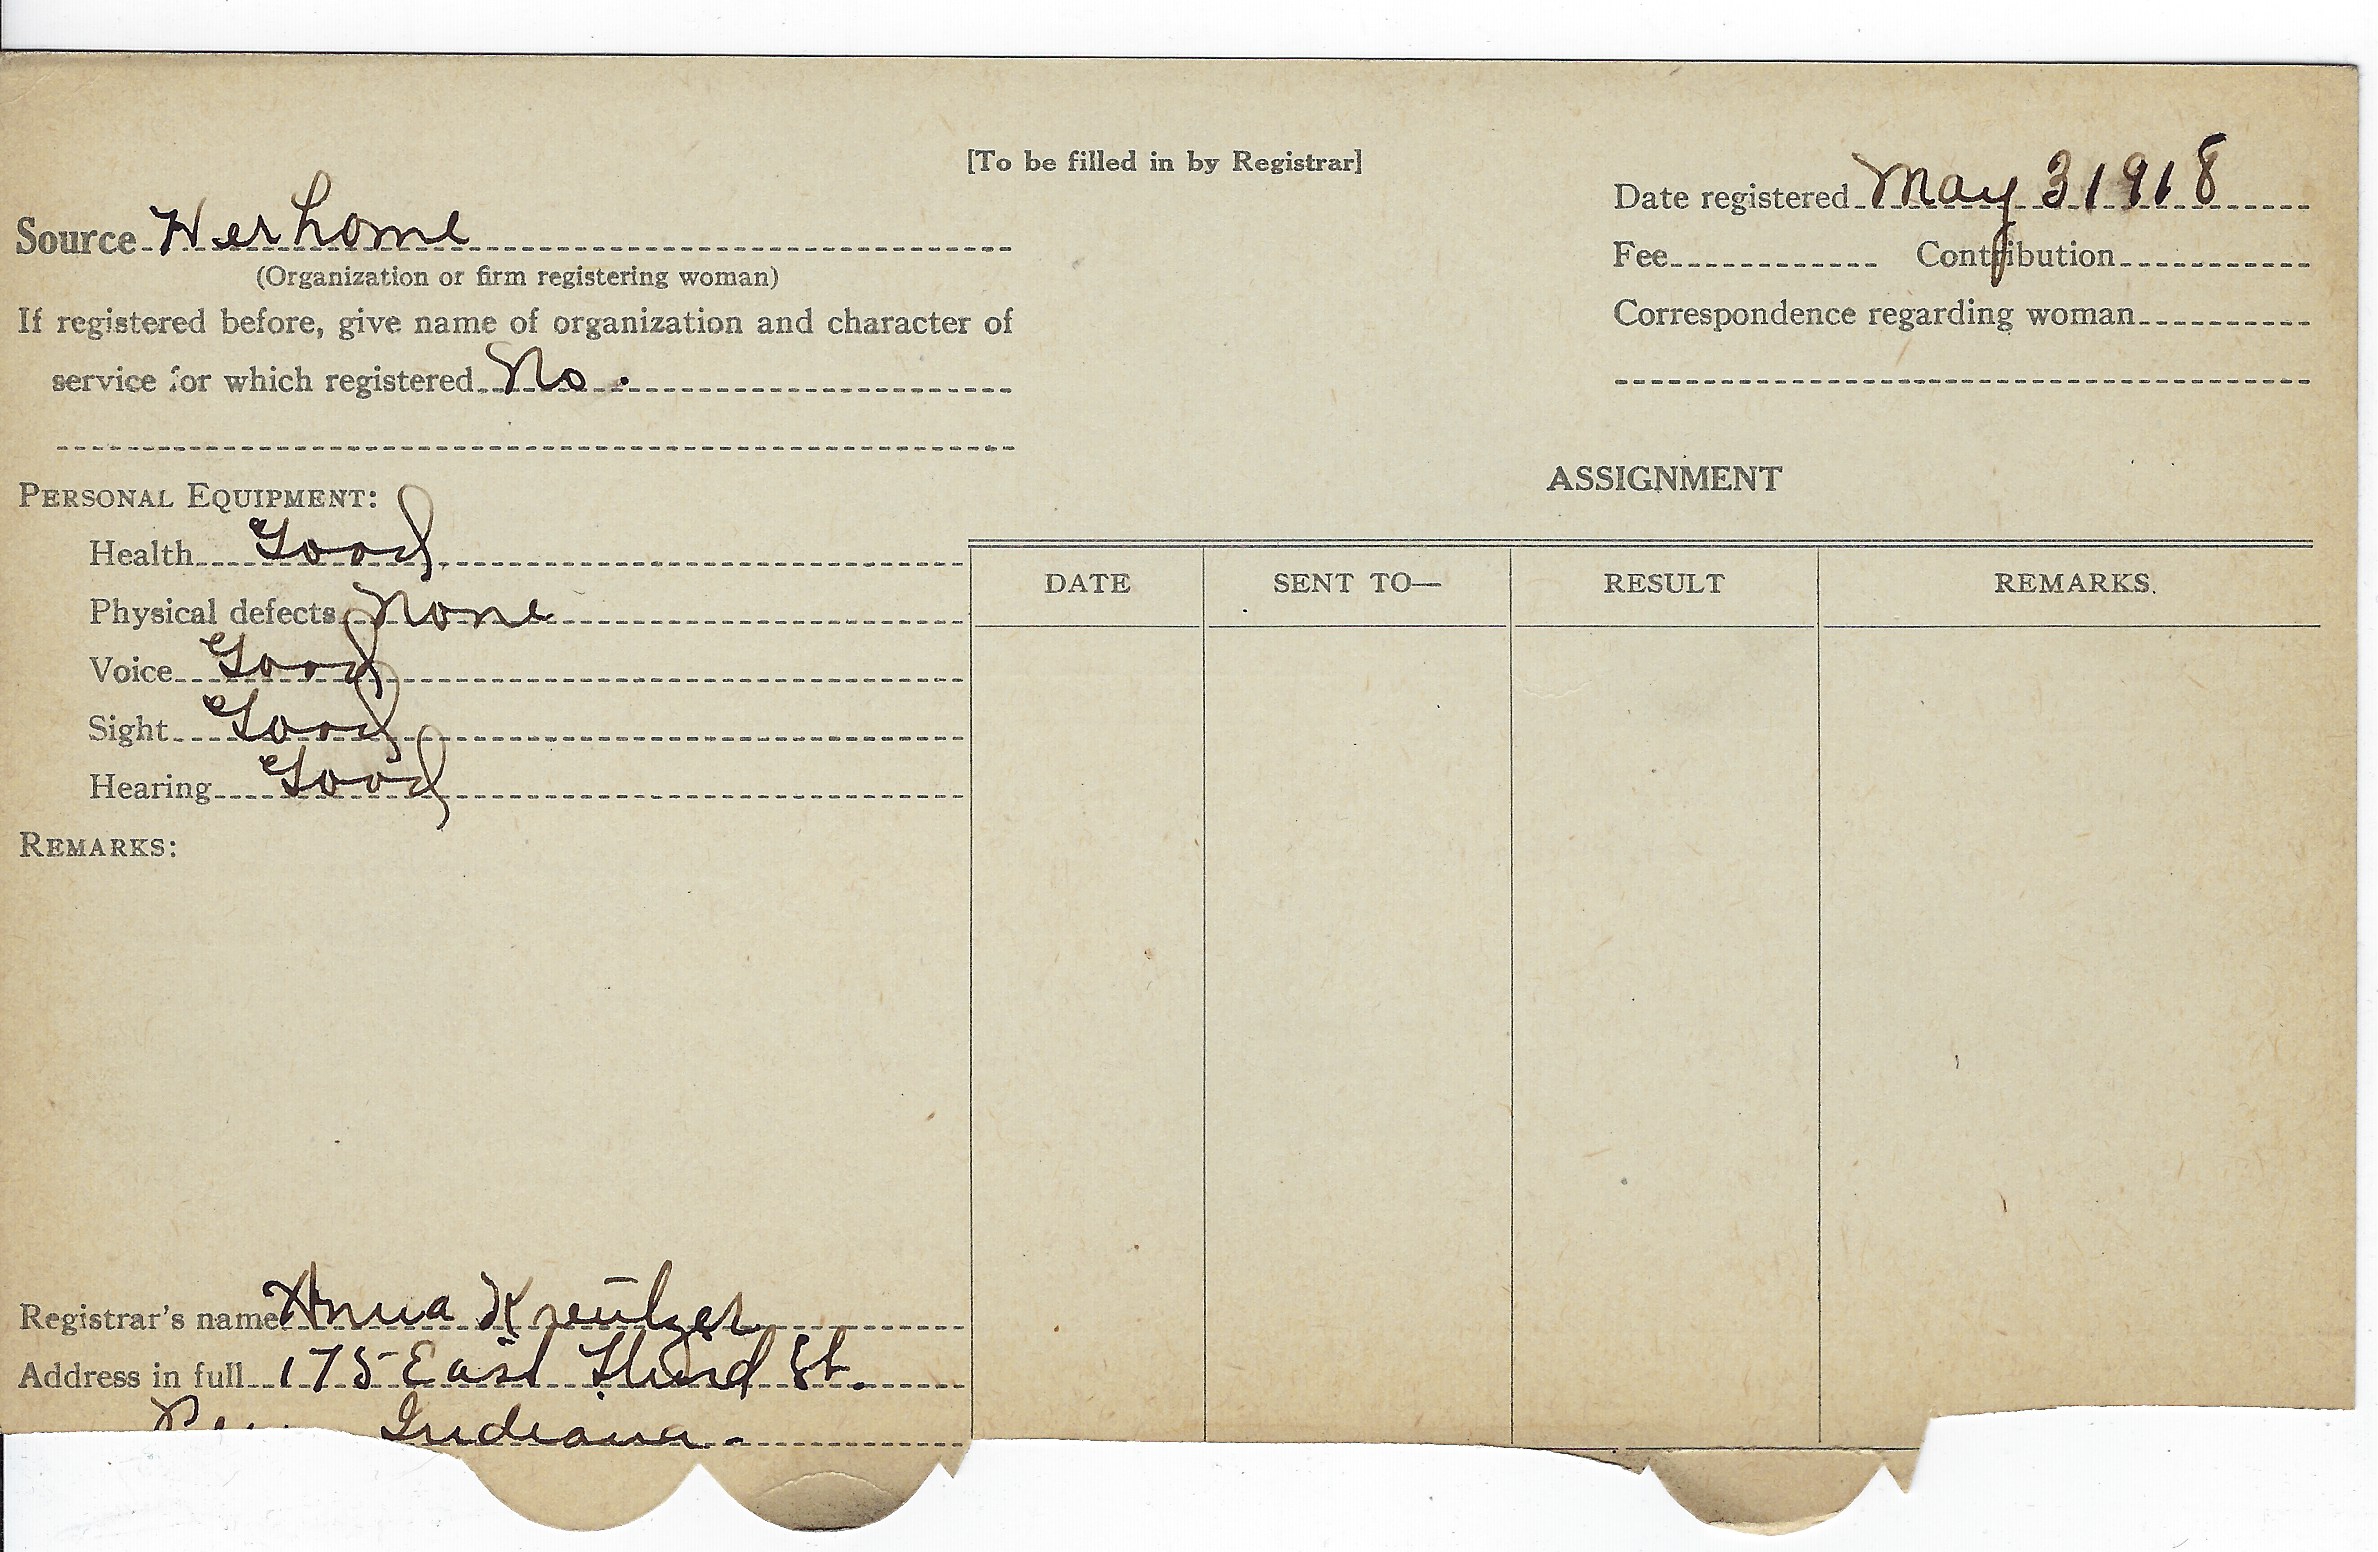 [To be filled in by Registrar]
Date registered May 3 1918
Source Her home
(Organization or firm registering woman)
Fee Contribution
If registered before, give name of organization and character of
Correspondence regarding woman
service for which registered No.
PERSONAL EQUIPMENT:
ASSIGNMENT
Health Good
DATE SENT TO— RESULT REMARKS.
Physical defects None
Voice Good
Sight Good
Hearing Good
REMARKS:
Registrar's name Anna Kreutzer
Address in full 175 East Third St.
Indiana.